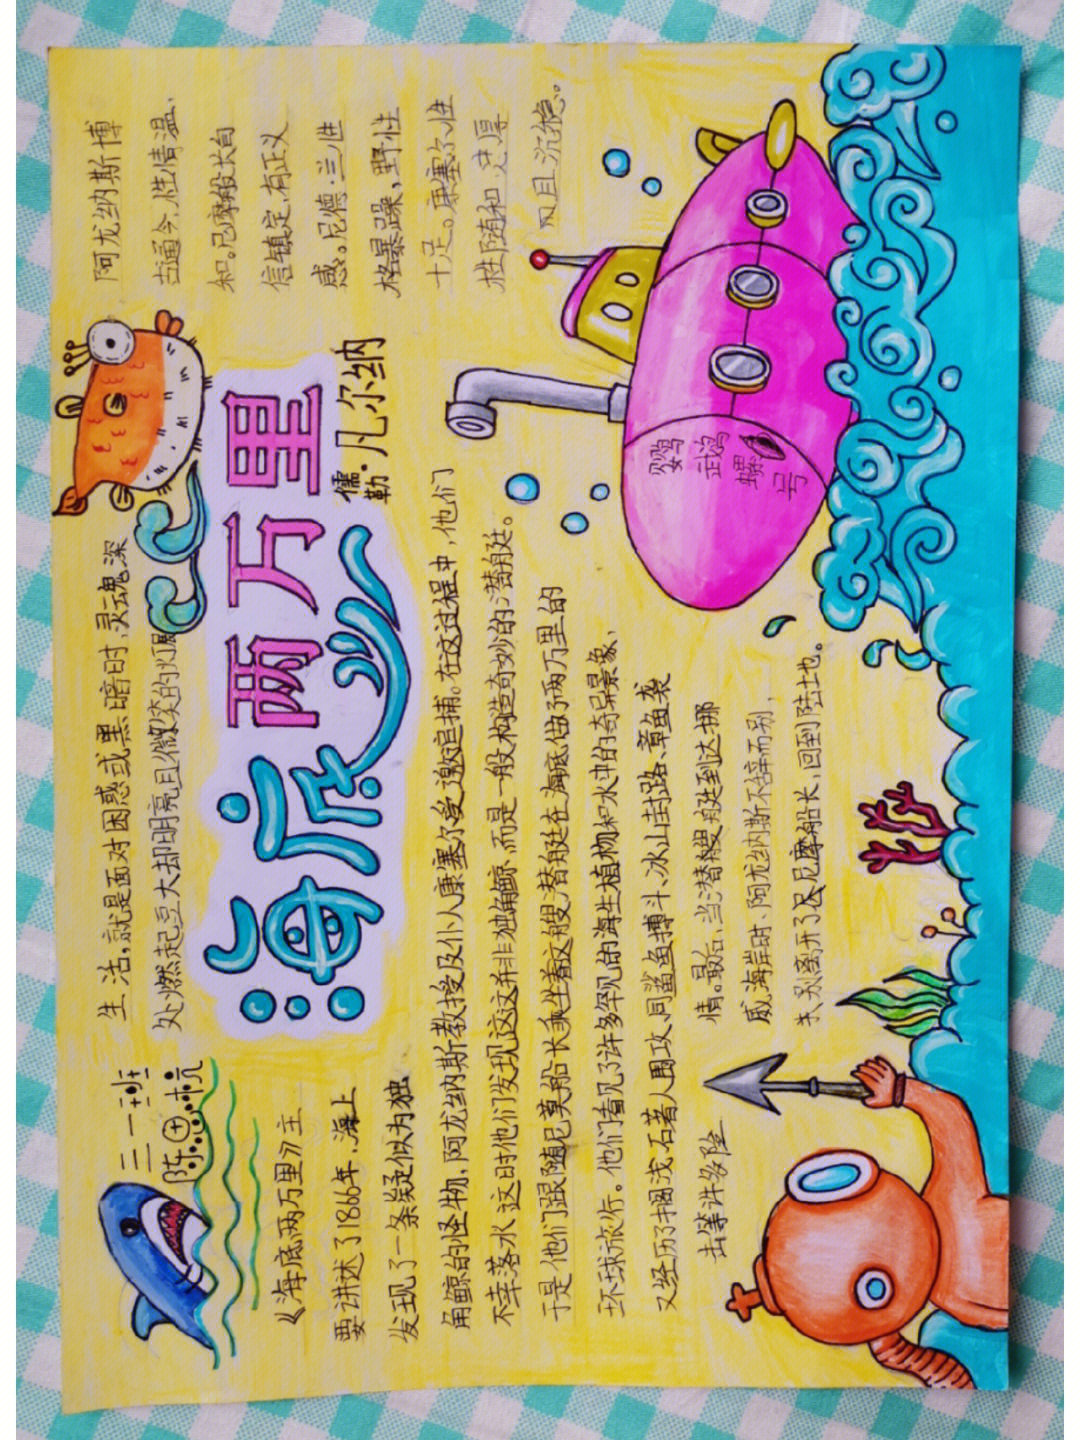 二一班
陈田杭
生活,就是面对困惑或黑暗时,灵魂深
处燃起豆大却明亮且微笑的灯展
海底两万里
儒勒·凡尔纳
阿龙纳斯博
古通今,性情温、
和。尼摩船长自
信镇定,有正义
感。尼德·兰性
格暴躁,野性
十足。康塞尔性
性随和,定厚
风且沉稳。
《海底两万里》主
要讲述了1866年,海上
发现了一条疑似为独
角鲸的怪物,阿龙纳斯教授及仆人康塞尔受邀追捕。在这过程中,他们
不幸落水,这时他们发现这这并非独角鲸、而是一般构造奇妙的潜艇。
于是他们跟随尼莫船长乘坐着这艘潜艇在海底做了两万里的
环球旅行。他们看见了许多罕见的海生植物和水中的奇异景象、
又经历了搁浅、石著人围攻、同鲨鱼搏斗、冰山封路、章鱼袭
击等许多险
情。最后,当潜艘艇到达挪
威海岸时、阿龙纳斯不辞而别,
离开了尼摩船长,回到陆地。
鹦鹉螺号